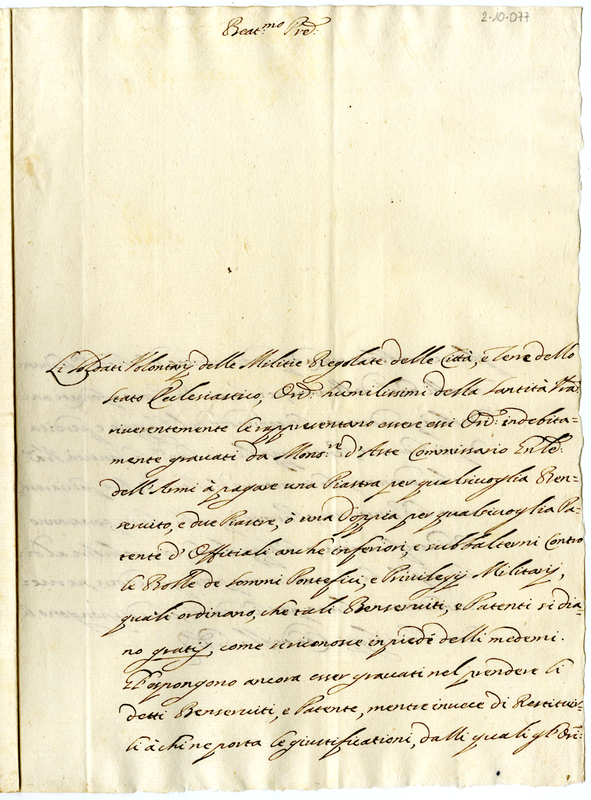 2-10-077
Beat.mo Pre:
Li Soldati Volontarij delle Militie Regolate delle Città, e Terre dello
Stato Ecclesiastico, Ori: humilissimi della Santità Vra:
riverentemente le rappresentano essere essi Ori: indebita=
mente gravati da Mons:re d'Aste Commissario Gnle:
dell'Armi à pagare una Piastra per qualsivoglia Ben=
servito, e due Piastre, ò una Doppia per qualsivoglia Pa=
tente d'Offitiali anche inferiori, e subbalterni Contro
le Bolle de sommi Pontefici, e Privilegij Militarij,
quali ordinano, che tali Benserviti, e Patenti si dia=
no gratis, come si riconosce in piedi delli medemi.
Espongono ancora esser gravati nel prendere li
detti Benserviti, e Patente, mentre invece di Restituir=
li à chi ne porta le giustificationi, dalli quali gl'Ori: